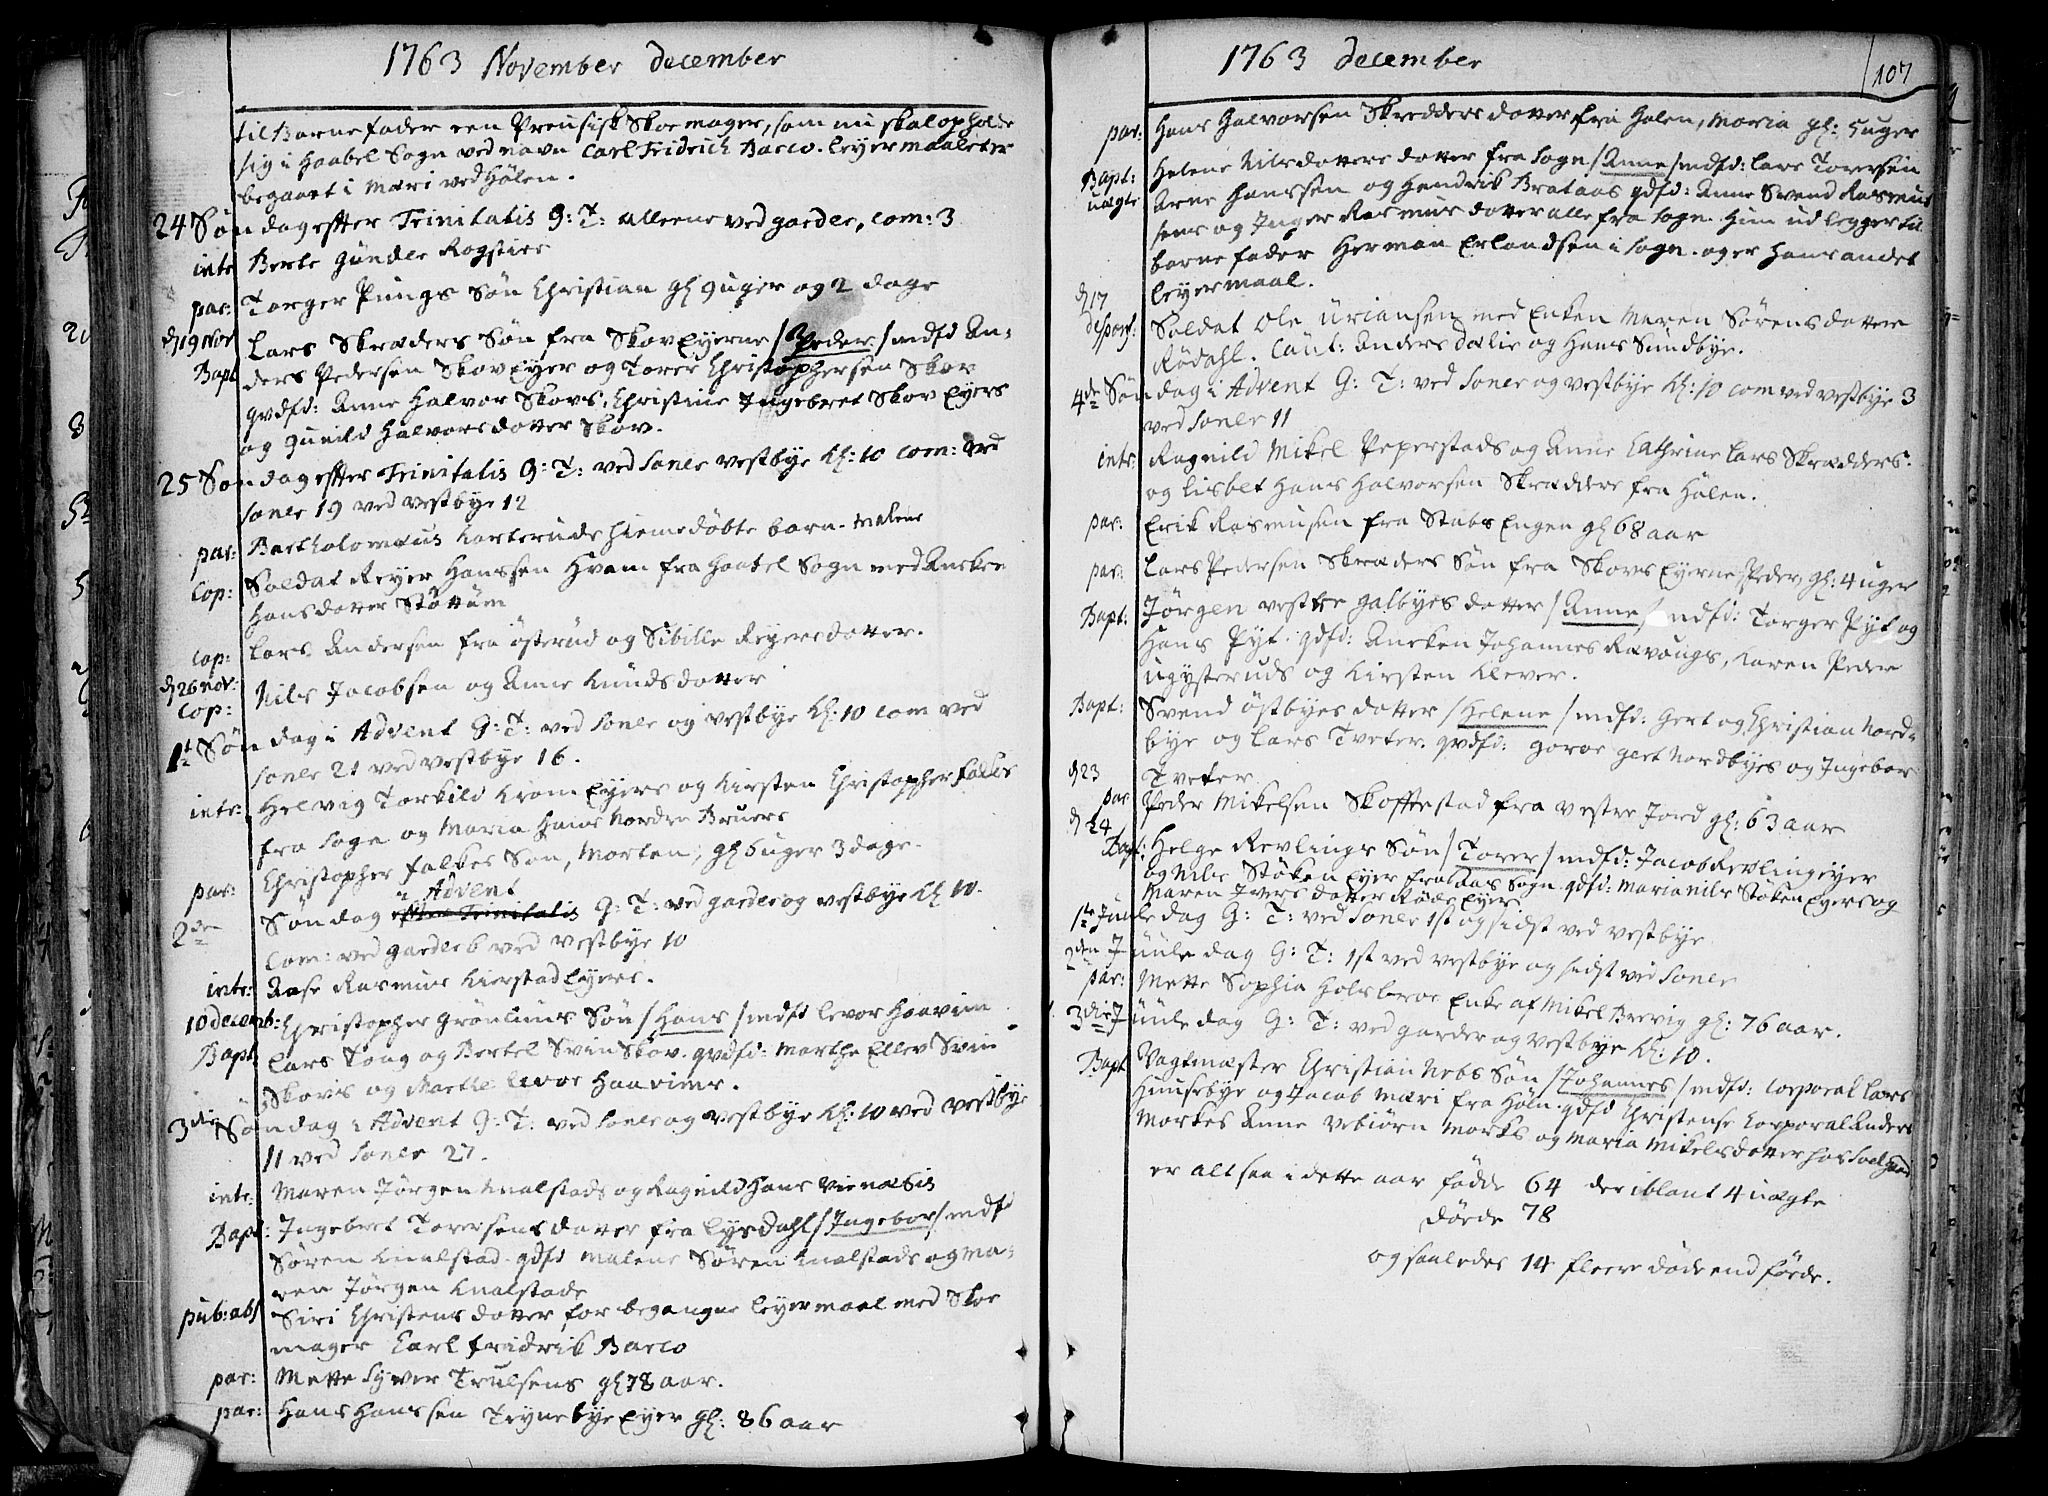 1763 November december
til Barnefader een Preusisk Skoemager, som nu skal opholde
sig i Haabel Sogn ved navn Carl Fridrich Barco. leyermaalet er
begaaet i Mæri ved Hölen.
24 Söndag effter Trinitatis G: T: alleene ved garder, com: 3
intr Berte Gunder Rogstier
par: Torger Pungs Sön Christian gl 9 uger og 2 dage
d 19 Nov Lars Skræders Sön fra SkovEyerne / Peder / mdfd An-
Bapt ders Pedersen SkovEyer og Torer Christophersen Skov
qvdfd: Anne Halvor Skovs, Christine Ingebret Skov Eyers
og Gunild Halvorsdotter Skov.
25 Söndag effter Trinitatis G: T: ved Soner vestbye Kl: 10 com: ved
Soner 19 ved vestbye 12
par: Bartholomæus Karteruds hiemedöbte barn. Malene
Cop: Soldat Reyer Hanssen Hvam fra Haabel Sogn med Anken
Hansdotter Stöttum
Cop: Lars Andersen fra österud og Sibille Reyersdotter.
d 26 nov: Nils Jacobsen og Anne Knudsdotter
Cop:
1te Söndag i Advent G: T: ved Soner og vestbye Kl: 10 com ved
Soner 21 ved vestbye 16.
intr: Helvig Torkild Krom Eyers og Kirsten Christopher Falkes
fra Sogn og Maria Hans Nordre Bruers
par: Christopher Falkes Sön, Morten, gl 6 uger 3 dage.
i Advent
2den Söndag effter Trinitatis G: T: ved garder og vestbye Kl 10.
Com: ved garder 6 ved vestbye 10
intr: Aase Rasmus Kierstad Eyers.
10 decemb: Christopher Grönliins Sön / Hans / mdfd levor Haavim
Bapt Lars Tong og Bertel Svin Skov. qvdfd: Marthe Ellev Svin
Skovs og Marthe levor Haavims.
3die Söndag i Advent G: T: ved Soner og vestbye Kl: 10 ved vestbye
11 ved Soner 27.
intr: Maren Jörgen Knalstads og Ragnild Hans
Bapt: Ingebret Torersens dotter fra Lysdahl / Ingebor / mdfd
Sören Knalstad. qdfd Malene Sören Knalstads og Ma-
ren Jörgen Knalstads
pub: abs Siri Christensdotter for begangne leyermaal med Skoe
mager Carl Fridrik Barco
par: Mette Syver Trulsens gl 78 aar.
par: Hans Hanssen Teynebye Eyer gl: 86 aar
1763 december
107
par: Hans Halvorsen Skredders dotter fra Holen, Maria gl: 5 uger
Bapt: Helene Nilsdotters dotter fra Sogn / Anne / mdfd: Lars Torersen
uægte Arne Hanssen og Hendrik Brataas qdfd: Anne Svend Rasmus
sens og Inger Rasmusdotter alle fra Sogn. Hun udlegger til
barnefader Herman Erlandsen i Sogn. og er hans andet
leyermaal.
d 17
desport: Soldat Ole Uriansen med Enken Maren Sörensdotter
Rödahl. Caut: Anders Dælie og Hans Sundbye.
4de Söndag i Advent G: T: ved Soner og vestbye Kl: 10 com ved vestbye 3
ved Soner 11
intr: Ragnild Mikel Peperstads og Anne Cathrine Lars Skrædders.
og Lisbet Hans Halvorsen Skrædders fra Hölen.
par: Erik Rasmusen fra Stubs Engen gl 68 aar
par: Lars Pedersen Skræders Sön fra Skovs Eyerne, Peder, gl: 4 uger
Bapt: Jörgen vestre galbyes dotter / Anne / mdfd: Torger Pyt og
Hans Pyt. qdfd: Anken Johannes Ravougs, Karen Peder
ugysteruds og Kirsten Klever.
Bapt: Svend östbyes dotter / Helene / mdfd: Gert og Christian Nord-
bye og Lars Tveter. qvdfd: Goroe Gert Nordbyes og Ingebor
d 23 Tveter
par Peder Mikelsen Skoffestad fra vestre Jord gl: 63 aar
d 24
Bapt: Helge Revlings Sön / Torer / mdfd: Jacob Revling eyer
og Nils Stöken Eyer fra Aas Sogn. qdfd: Maria Nils Stöken Eyers og
Maren Iversdotter Röds Eyer
1te Juule dag G: T: ved Soner 1st og sidst ved vestbye
2den Juule dag G: T: 1st ved vestbye og sidst ved Soner
par: Mette Sophia Holsbroe Enke af Mikel Brevig gl: 76 aar.
3die Juule dag G: T: ved garder og vestbye Kl: 10.
Bapt Vagtmæster Christian Nebs Sön / Johannes / mdfd: Corporal Lars
Huusebye og Jacob Mæri fra Höln. qdfd Christense Corporal Anders
Morkes Anne Vebiörn Morks og Maria Mikelsdotter hos
er altsaa i dette aar födde 64 deriblant 4 uægte
Döede 78
og saaledes 14 fleere döde end föede.